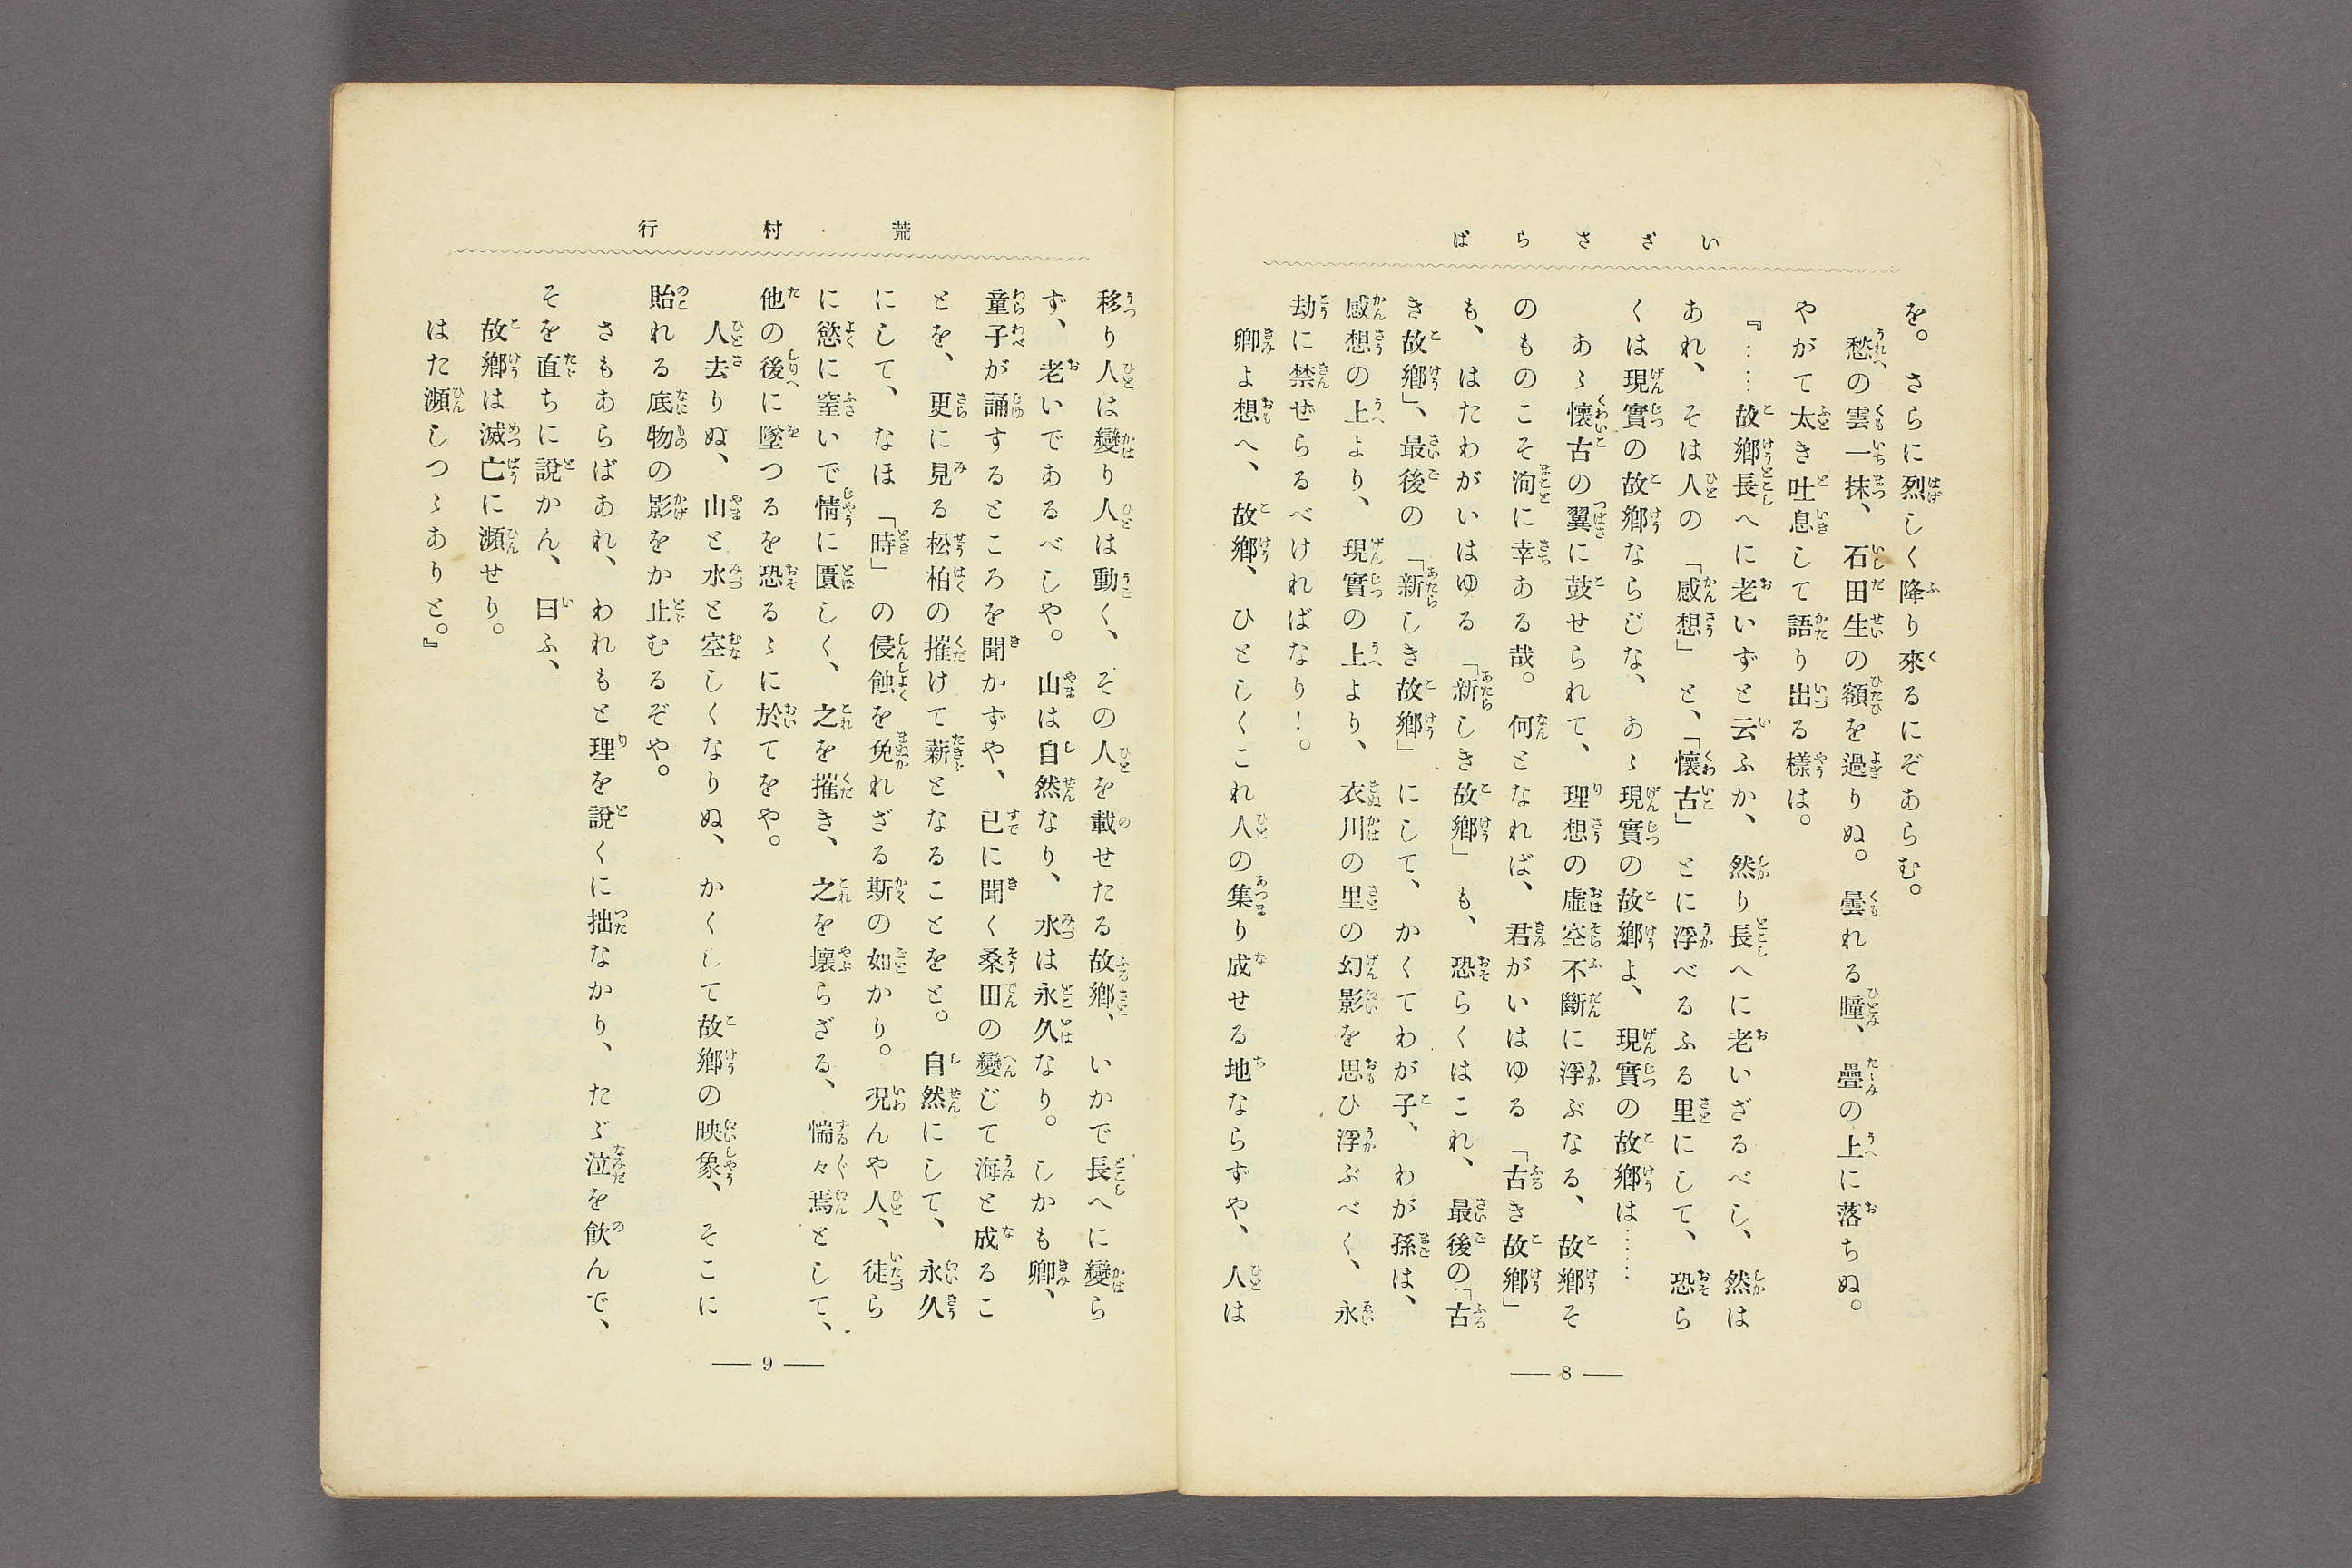 いざさらば
を。さらに烈しく降り來るにぞあらむ。
愁の雲一抹、石田生の額を過りぬ。曇れる瞳、疊の上に落ちぬ。
やがて太き吐息して語り出る樣は。
『……故鄕長へに老いずと云ふか、然り長へに老いざるべし、然は
あれ、そは人の「感想」と、「懷古」とに浮べるふる里にして、恐ら
くは現實の故鄕ならじな、あゝ現實の故鄕よ、現實の故鄕は……
あゝ懷古の翼に鼓せられて、理想の虛空不斷に浮ぶなる、故鄕そ
のものこそ洵に幸ある哉。何となれば、君がいはゆる「古き故鄕」
も、はたわがいはゆる「新しき故鄕」も、恐らくはこれ、最後の「古
き故鄕」、最後の「新しき故鄕」にして、かくてわが子、わが孫は、
感想の上より、現實の上より、衣川の里の幻影を思ひ浮ぶべく、永
劫に禁ぜらるべければなり！。
卿よ想へ、故鄕、ひとしくこれ人の集り成せる地ならずや、人は
— 8 —
荒村行
移り人は變り人は動く、その人を載せたる故鄕、いかで長へに變ら
ず、老いであるべしや。山は自然なり、水は永久なり。しかも卿、
童子が誦するところを聞かずや、已に聞く桑田の變じて海と成るこ
とを、更に見る松柏の摧けて薪となることをと。自然にして、永久
にして、なほ「時」の侵蝕を免れざる斯の如かり。況んや人、徒ら
に慾に窒いで情に匱しく、之を摧き、之を壞らざる、惴々焉として、
他の後に墜つるを恐るゝに於てをや。
人去りぬ、山と水と空しくなりぬ、かくして故鄕の映象、そこに
貽れる底物の影をか止むるぞや。
さもあらばあれ、われもと理を說くに拙なかり、たゞ泣を飮んで、
そを直ちに說かん、曰ふ、
故鄕は滅亡に瀕せり。
はた瀕しつゝありと。』
— 9 —